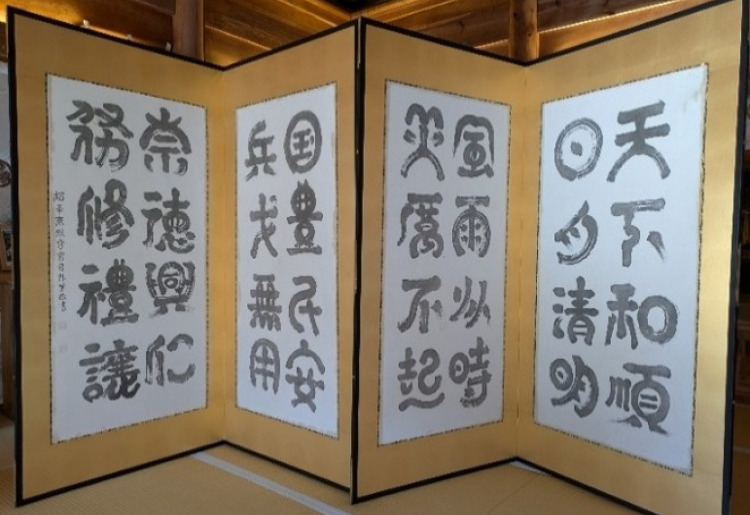 天下和順
日月清明
風雨以時
災厲不起
国豊民安
兵戈無用
崇徳興仁
務修禮讓